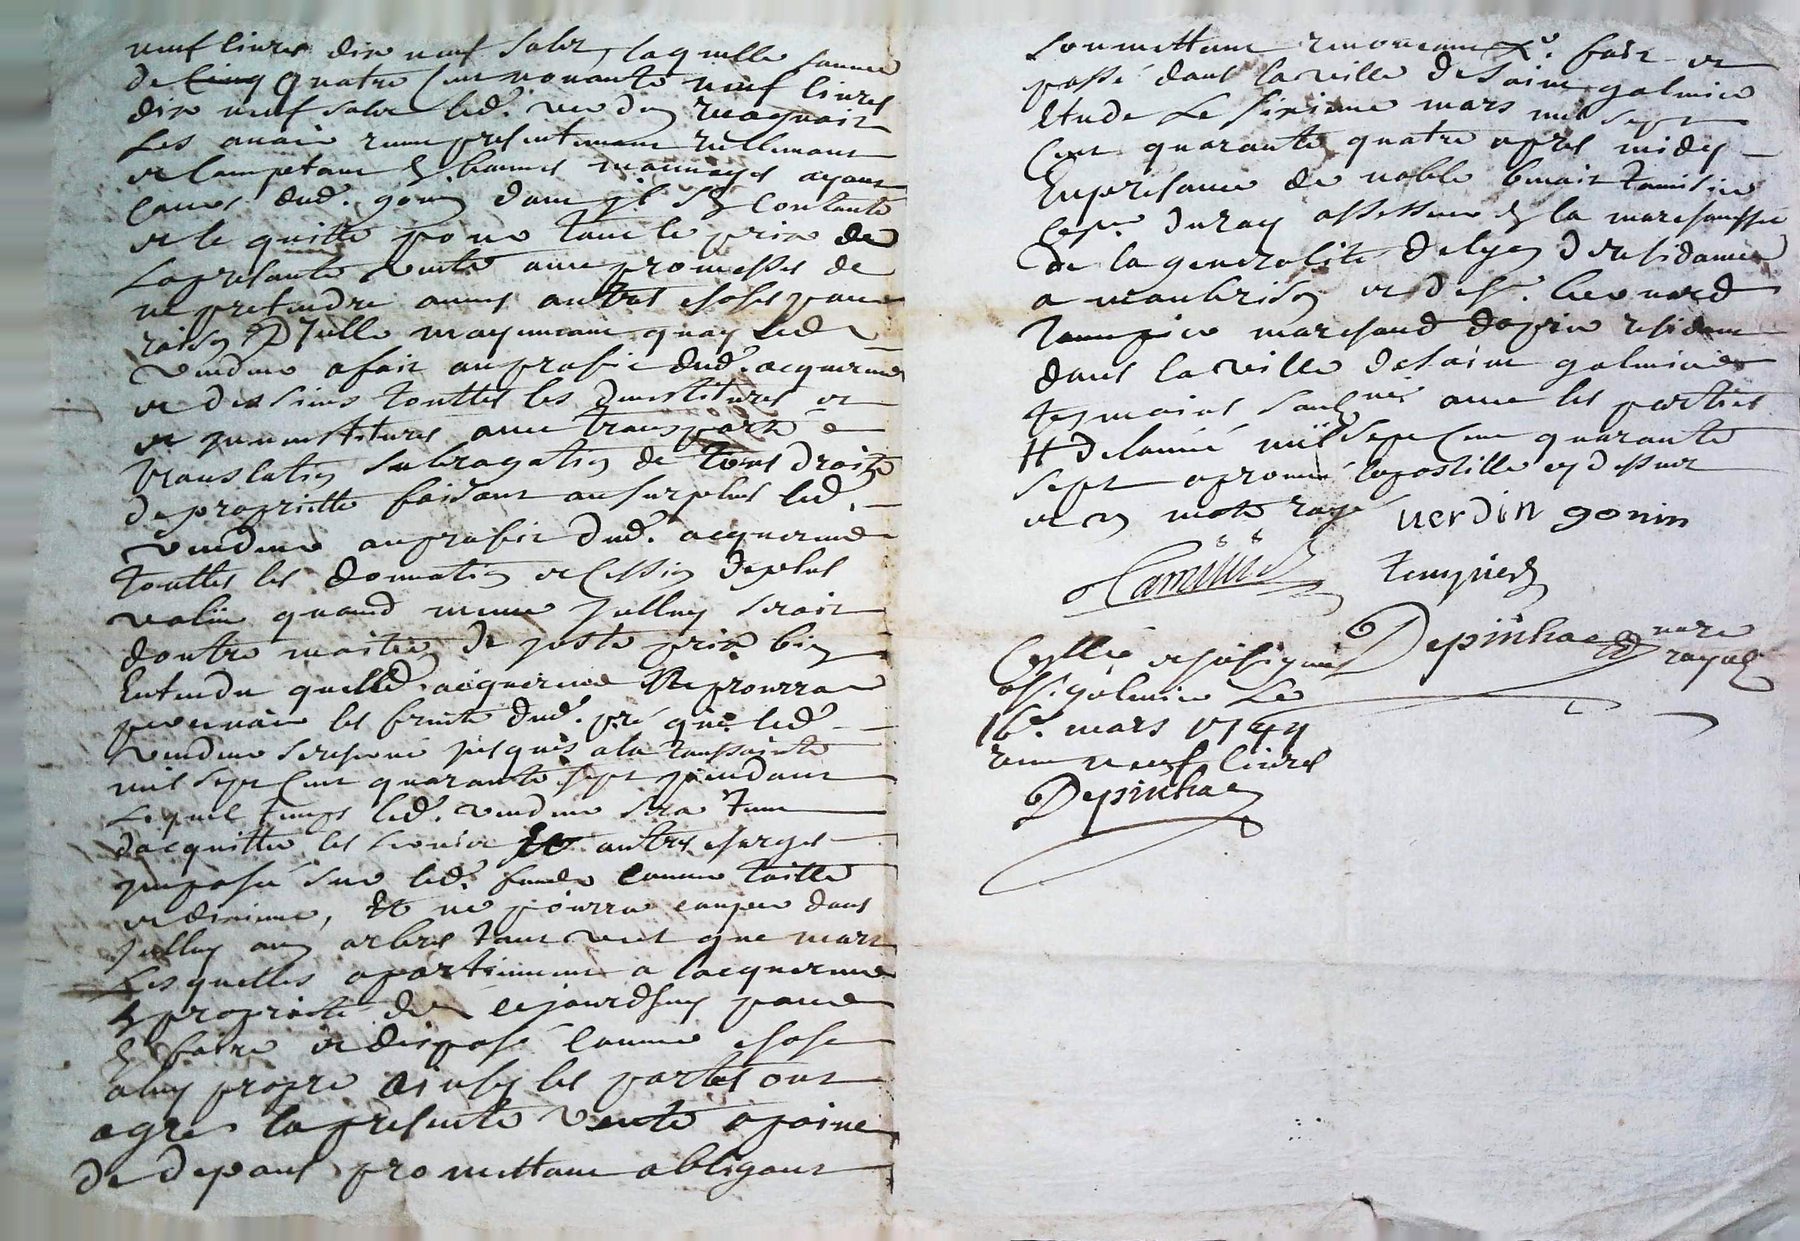 neuf livres dix neuf solz, laquelle somme
de cinq quatre cent nonante neuf livres
dix neuf solz led. verdin recognoit
les avoir reçeu presentement reellement
et comptant en bonnes monnoyes ayant
cours dud. gonin dont il s'en contante
et le quitte pour tout le prix de
la presente vente avec promesses de
ne pretendre aucuns autres choses pour
raison D'icelle moyennant quoy led.
vendeur a fait au profit dud. acquereur
et des siens touttes les devestitures et
et investitures avec transport
translation subrogation de tous droits
de proprietté faisant au surplus led.
vendeur au profit dud. acquereur
touttes les donnation et cession de plus
valüe quand meme icelluy seroit
d'outre moitié de juste prix bien
Entendu quelled. acquereur Ne pourra
percevoir les fruits dud. pré que led.
vendeur s'est reservé jusques a la toussainte
mil sept cent quarante sept pendant
lequel temps led. vendeur sera tenu
d'acquitter les servis et autres charges
imposé sur led. fonds comme taille
et dixieme, et ne pourra couper dans
icelluy aucun arbres tant vert que mort
Lesquelles apartiennent a l'acquereur
en proprieté des ce jourd'huy pour
en faire et disposé comme chose
a luy propre ainsy les parties ont
agréé la presente vente a peine
de depans promettant obligant
soumettant renonceant &c. fait et
passé dans la ville de Saint galmier
Etude le sixieme mars mil sept
cent quarante quatre apres midy
En presance de noble benoit
duray assesseur en la marechaussée
de la generalité de lyon de residance
a montbrison et de sr. Leonard
Tempier marchand residant
dans la ville de saint galmier
tesmoins soubsignés avec les parties
# de l'année mil sept cent quarante
sept aprouvé l'apostille cy dessus
et un mots rayé verdin gonin
Camüset tempier
Depinhac nore
royal
Cellé et
a St. galmier Le
16e. mars 1744
reçu neuf livres
Depinhac